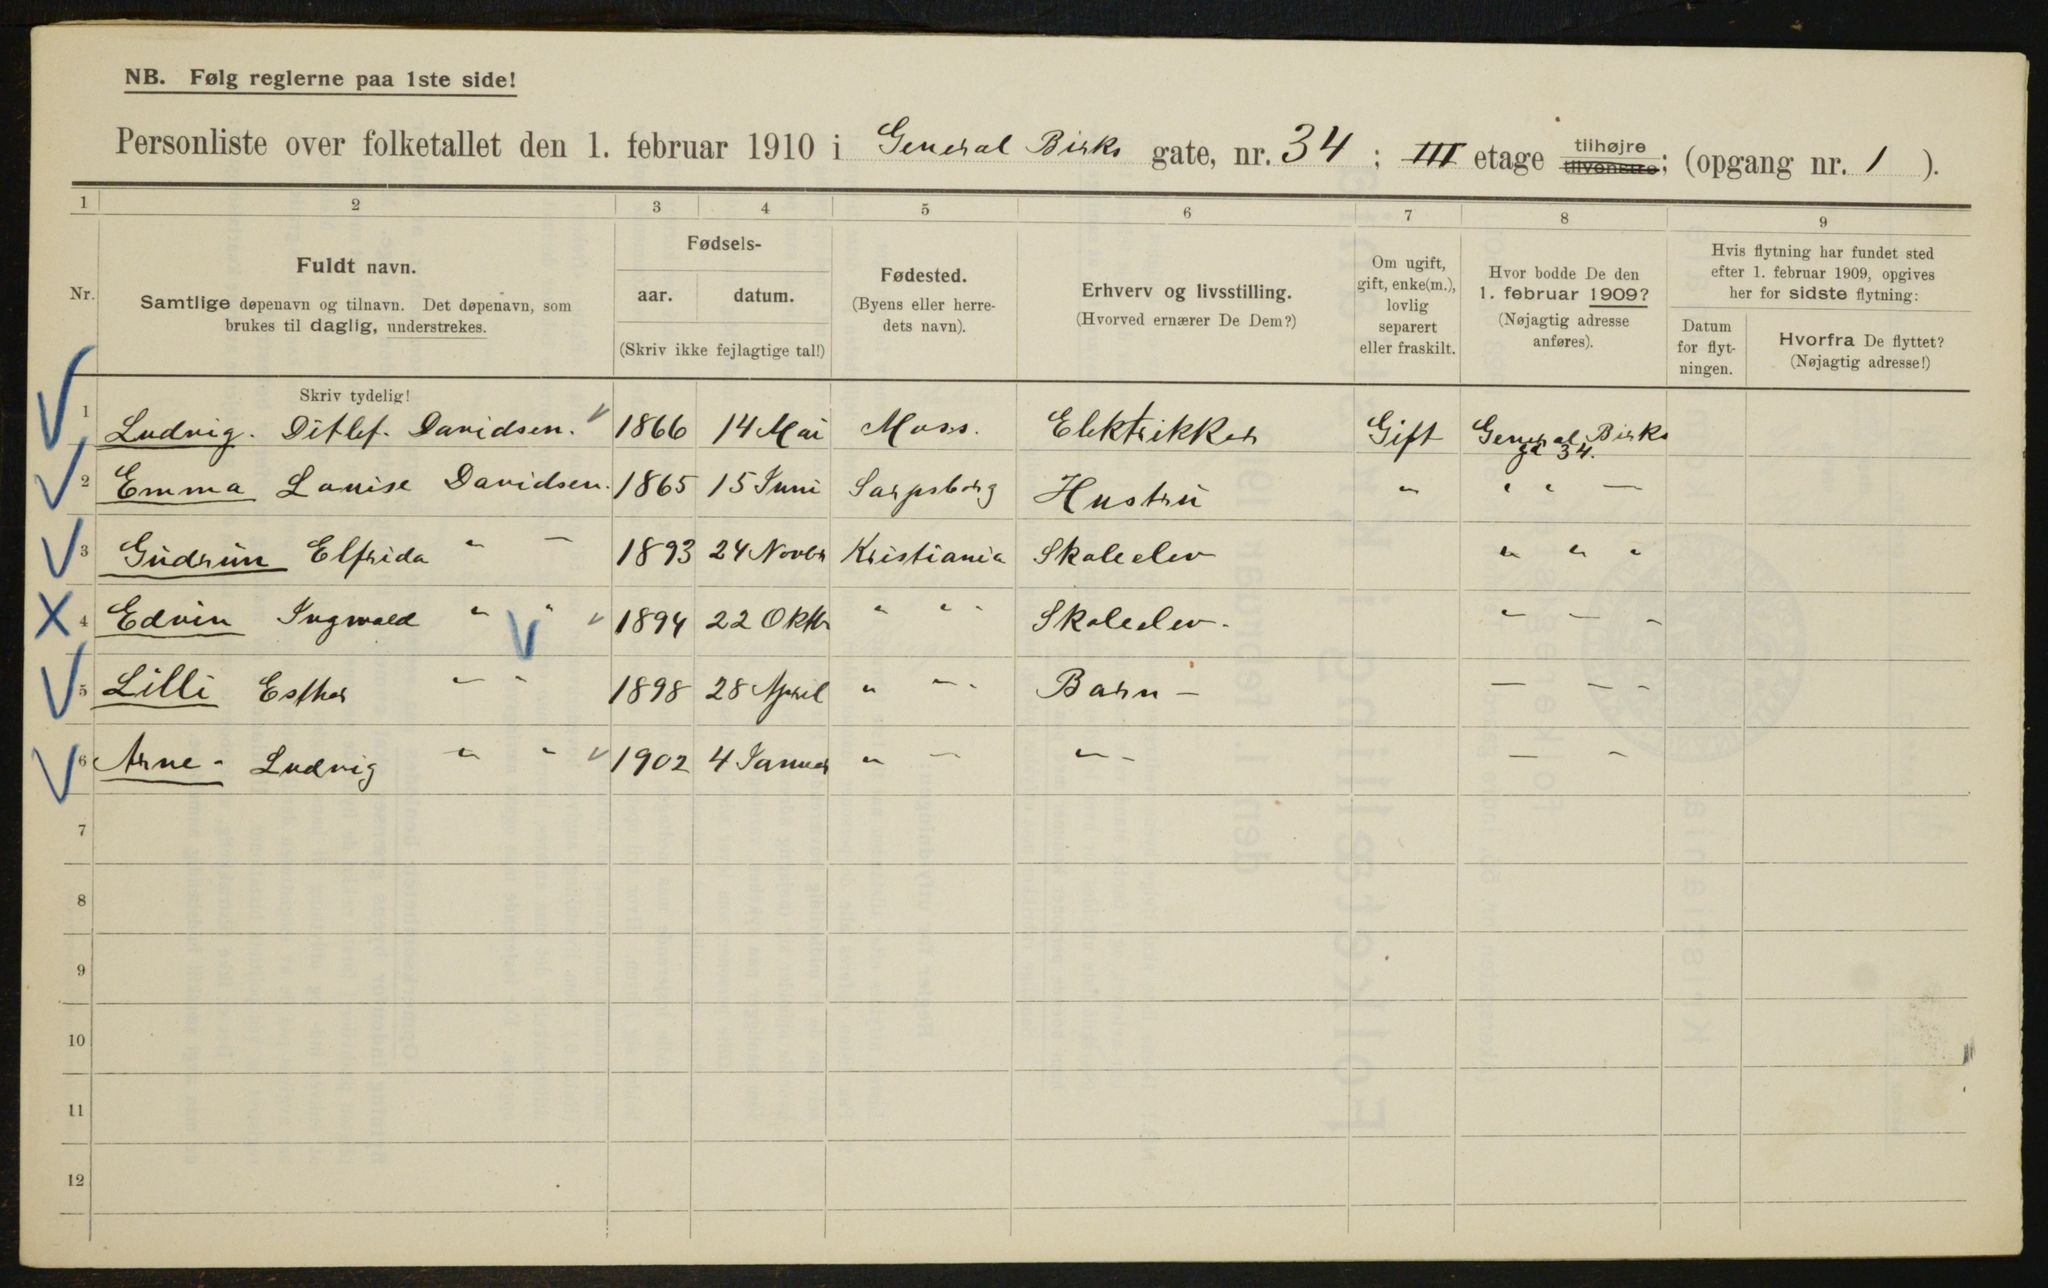 NB. Følg reglerne paa 1ste side!
Personliste over folketallet den 1. februar 1910 i General Birks gate, nr. 34 ; III etage tilhøjre tilvenstre; (opgang nr. 1 ).
1 2 3 4 5 6 7 8 9
Nr.
Fuldt navn.
Samtlige døpenavn og tilnavn. Det døpenavn, som
brukes til daglig, understrekes.
Fødsels-
aar. datum.
(Skriv ikke fejlagtige tal!)
Fødested.
(Byens eller herre-
dets navn).
Erhverv og livsstilling.
(Hvorved ernærer De Dem?)
Om ugift,
gift, enke(m.),
lovlig
separert
eller fraskilt.
Hvor bodde De den
1. februar 1909?
(Nøjagtig adresse
anføres).
Hvis flytning har fundet sted
efter 1. februar 1909, opgives
her for sidste flytning:
Datum
for flyt-
ningen.
Hvorfra De flyttet?
(Nøjagtig adresse!)
Skriv tydelig!
1 Ludvig. Ditlef. Davidsen. 1866 14 Mai Moss. Elektrikker Gift General Birks
gd 34.
2 Emma Louise Davidsen. 1865 15 Juni Sarpsborg Hustru " " " —
3 Gudrun Elfrida " — 1893 24 Novbr Kristiania Skoleelev " " "
4 Edvin Ingvald " " 1894 22 Oktbr " " - Skoleelev. " — -
5 Lilli Esther " " 1898 28 April " " - Barn — — — -
6 Arne - Ludvig " " 1902 4 Januar " — " - — "
7
8
9
10
11
12